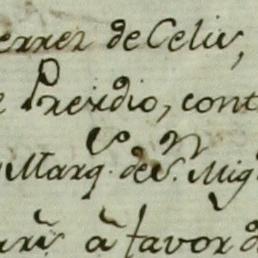 errer de Celis,
Presidio, cont
Marq.s de S.n Mig
à favor d